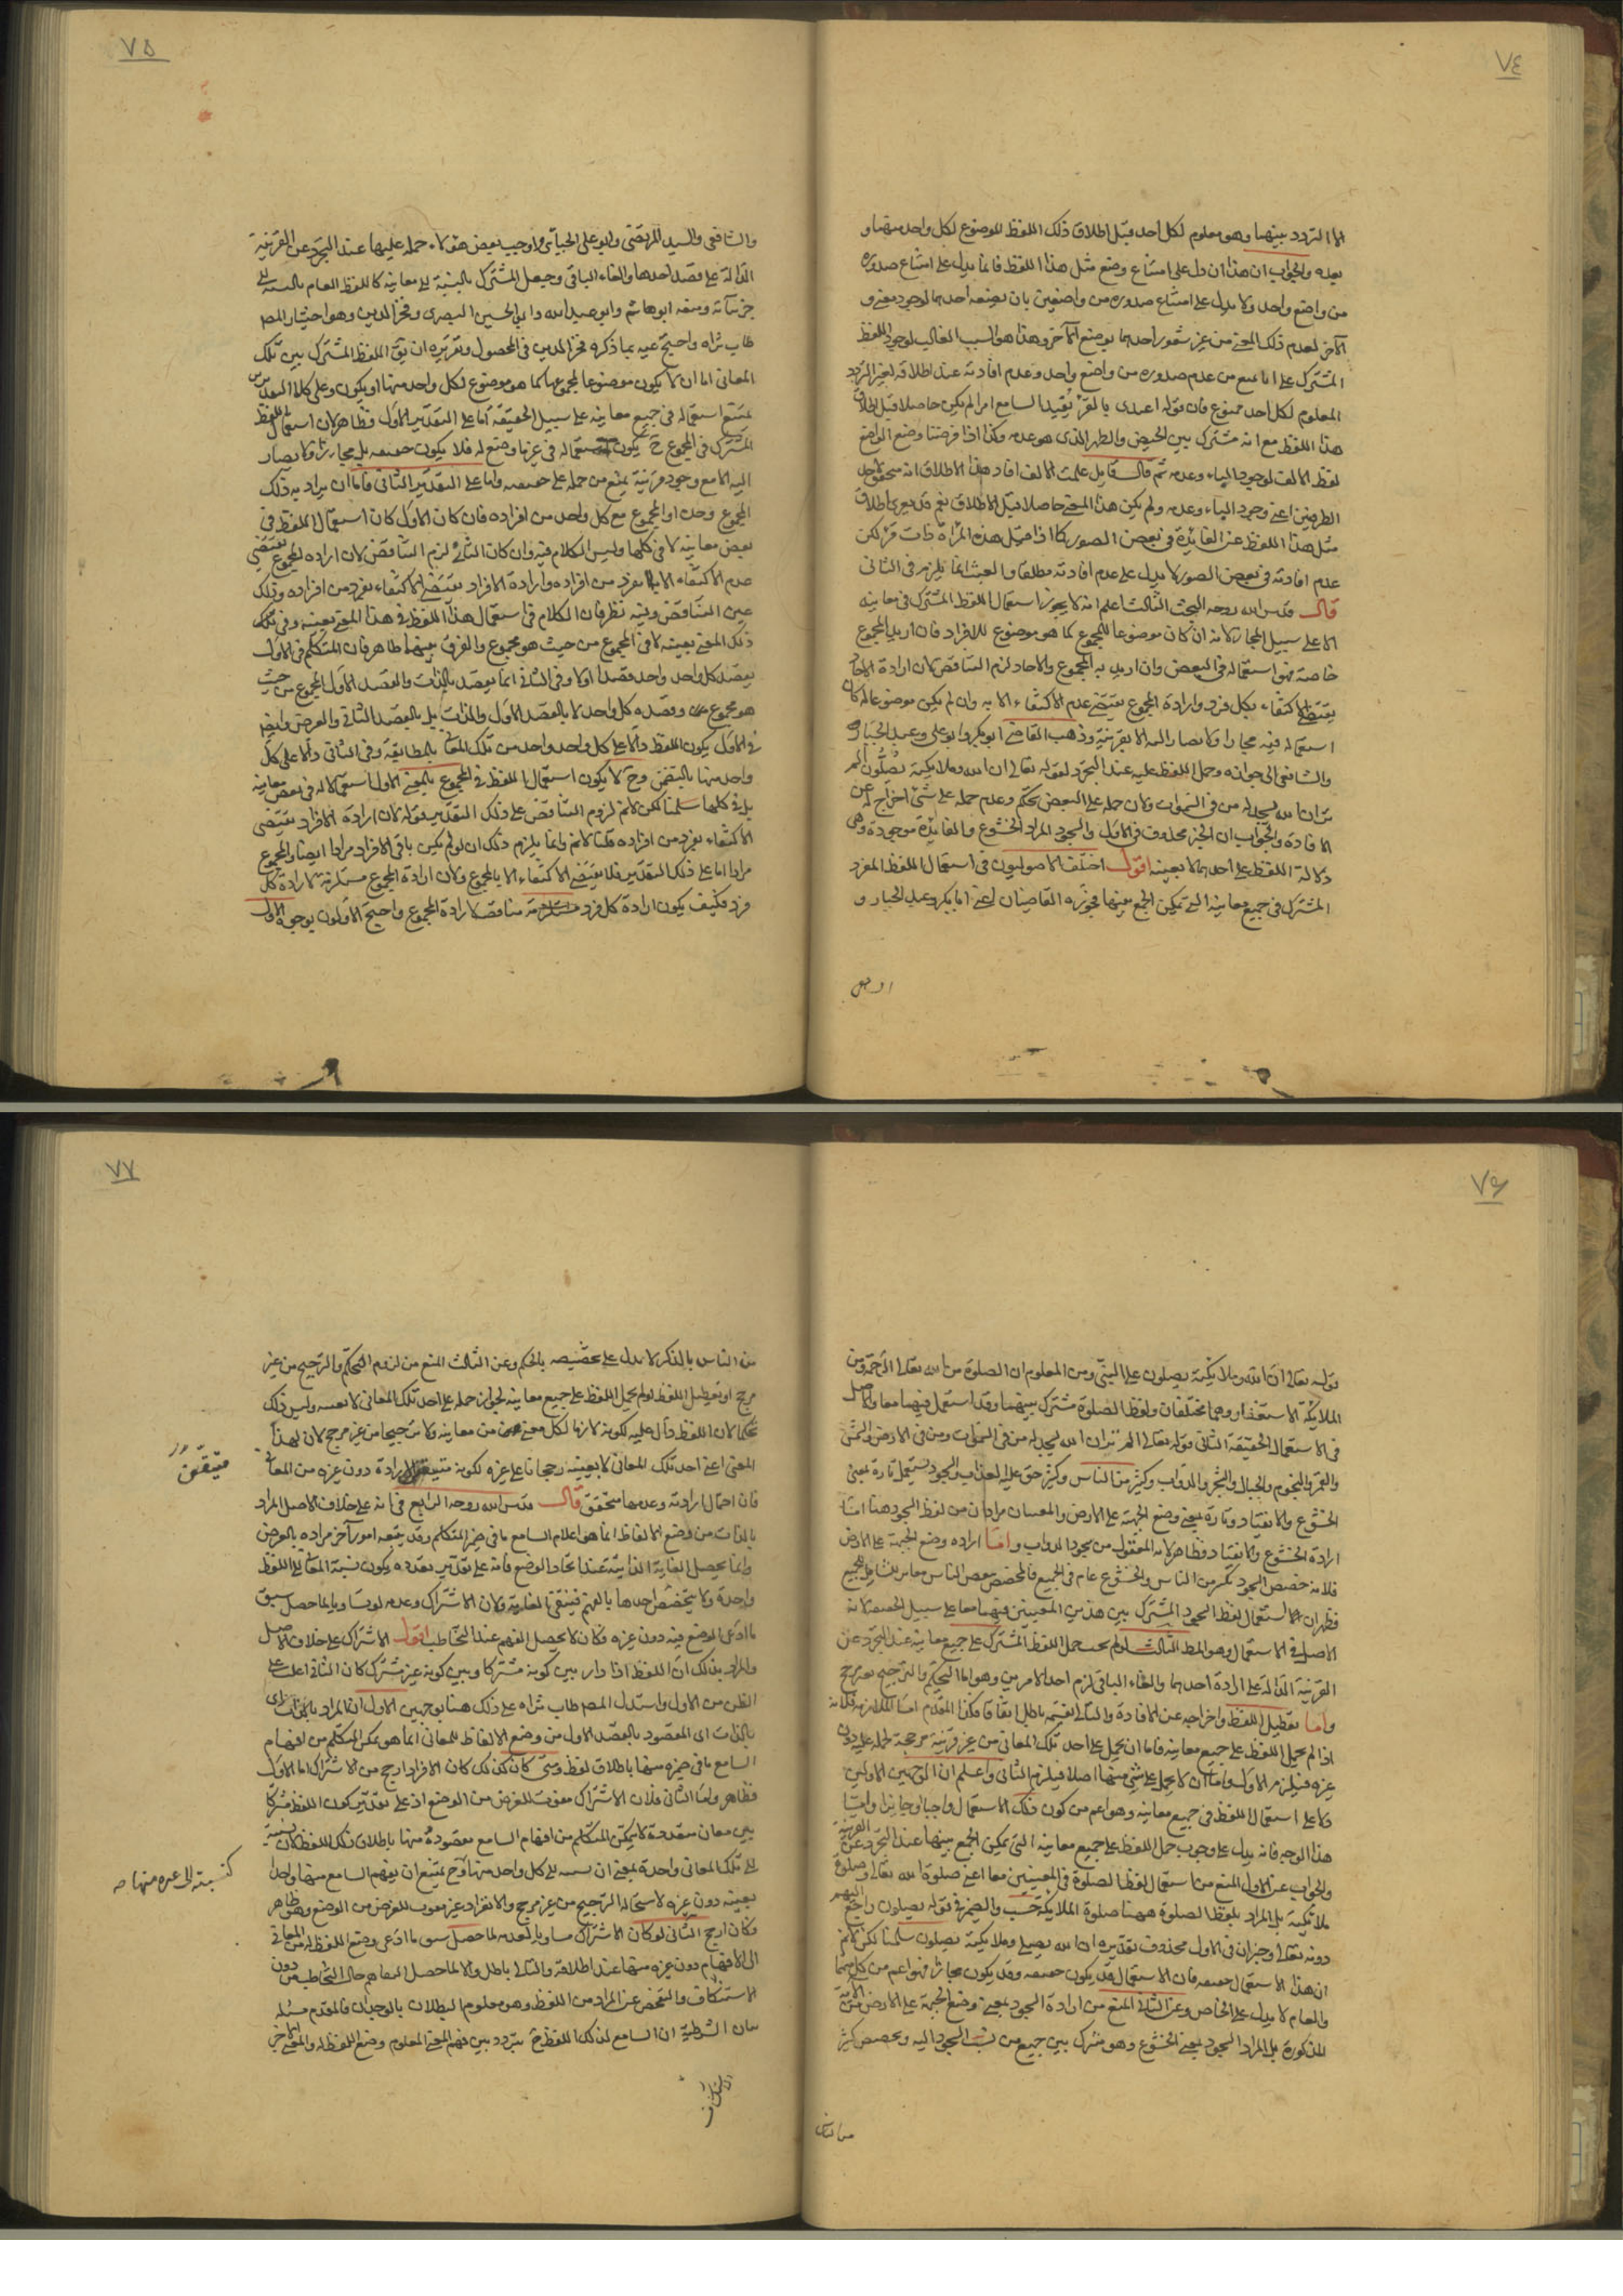 ٧٤
اما التردد بينهما وهو معلوم لكل احد قبل اطلاق ذلك اللفظ الموضوع لكل واحد منهما و
بعده والجواب ان هذا ان دل على امتناع وضع مثل هذا اللفظ فانما يدل على امتناع صدوره
من واضع واحد ولا يدل على امتناع صدوره من واضعين بان يضعه احدهما لوجود معنى و
الآخر لعدم ذلك المعنى من غير شعور احدهما بوضع الآخر وهذا هو السبب الغالب لوجود اللفظ
المشترك على انا نمنع من عدم صدوره من واضع واحد وعدم افادته عند اطلاقه لغير التردد
المعلوم لكل احد ممنوع فان قوله اعتدى بالقرء يُفيد السامع امرا لم يكن حاصلا قبل اطلاق
هذا اللفظ مع انه مشترك بين الحيض والطهر الذى هو عدمه وكذا اذا فرضنا وضع الواضع
لفظ الالف لوجود الباء وعدمه ثم قال قايل علمت الالف افاد هذا الاطلاق انه متحقق لاحد
الطرفين اعنى وجود الباء وعدمه ولم يكن هذا المعنى حاصلا قبل الاطلاق نعم قد يعرى اطلاق
مثل هذا اللفظ عن الفايدة فى بعض الصور كما اذا قيل هذه المرأة ذات قرء لكن
عدم افادته فى بعض الصور لا يدل على عدم افادته مطلقا والعبث انما يلزم فى الثانى
قال قدس الله روحه البحث الثالث اعلم انه لا يجوز استعمال اللفظ المشترك فى معانيه
الا على سبيل المجاز لانه ان كان موضوعا للمجموع كما هو موضوع للافراد فان اريد المجموع
خاصة فهو استعماله فى البعض وان اريد به المجموع والاحاد لزم التناقض لان ارادة الاحاد
يقتضى الاكتفاء بكل فرد وارادة المجموع يقتضى عدم الاكتفاء الا به وان لم يكن موضوعا له كان
استعماله فيه مجازا ولا يصار اليه الا بقرينة وذهب القاضى ابو بكر وابو على وعبد الجبار
والشافعى الى جوازه وحمل اللفظ عليه عند التجرد لقوله تعالى ان الله وملايكته يصلون الم
تر ان الله يسجد له من فى السموات ولان حمله على البعض تحكم وعدم حمله على شئ اخراج له عن
الافادة والجواب ان الخبر محذوف فى الاول والسجود المراد الخشوع والفايدة موجودة وهى
دلالة اللفظ على احدهما لا بعينه اقول اختلف الاصوليون فى استعمال اللفظ المفرد
المشترك فى جميع معانيه التى يمكن الجمع بينهما فجوزه القاضيان اعنى ابا بكر وعبد الجبار و
٧٥
والشافعى والسيد المرتضى وابو على الجبائى واوجب بعض هؤلاء حمله عليها عند التجرد عن القرينة
الدالة على قصد احدها والغاء الباقى وجعل المشترك بالنسبة الى معانيه كاللفظ العام بالنسبة الى
جزئياته ومنعه ابو هاشم وابو عبد الله وابو الحسين البصرى وفخر الدين وهو اختيار المص
طاب ثراه واحتج عليه بما ذكره فخر الدين فى المحصول وتقريره ان يق اللفظ المشترك بين تلك
المعانى اما ان لا يكون موضوعا لمجموعها كما هو موضوع لكل واحد منها او يكون وعلى كلا التقديرين
يمتنع استعماله فى جميع معانيه على سبيل الحقيقة اما على التقدير الاول فظاهر لان استعمال اللفظ
المشترك فى المجموع ح يكون استعماله فى غير ما وضع له فلا يكون حقيقة بل مجازا ولا يصار
اليه الا مع وجود قرينة يمنع من حمله على حقيقته واما على التقدير الثانى فاما ان يراد به ذلك
المجموع وحده او المجموع مع كل واحد من افراده فان كان الاول كان استعمالا للفظ فى
بعض معانيه لا فى كلها وليس الكلام فيه وان كان الثانى لزم التناقض لان ارادة المجموع يقتضى
عدم الاكتفاء بفرد من افراده وارادة الافراد يقتضى الاكتفاء بفرد من افراده وذلك
عين التناقض وفيه نظر فان الكلام فى استعمال هذا اللفظ فى هذا المعنى بعينه وفى تلك
ذلك المعنى بعينه لا فى المجموع من حيث هو مجموع والفرق بينهما ظاهر فان المتكلم فى الاول
يقصد كل واحد واحد قصدا اولا وفى الثانى انما يقصد بالذات والقصد الاول المجموع من حيث
هو مجموع وقصده كل واحد لا بالقصد الاول والذات بل بالقصد الثانى والعرض وايضا
فى الاول يكون اللفظ دالا على كل واحد واحد من تلك المعانى بالمطابقة وفى الثانى دالا على كل
واحد منها بالتضمن وح لا يكون استعمال اللفظ فى المجموع بالمعنى الاول استعمالا له فى بعض معانيه
بل فى كلها سلمنا لكن لانم لزوم التناقض على ذلك التقدير قوله لان ارادة الافراد يقتضى
الاكتفاء بفرد من افراده قلنا لانم وانما يلزم ذلك ان لو لم يكن باقى الافراد مرادا ايضا والمجموع
مرادا اما على ذلك التقدير فلا يقتضى الاكتفاء الا بالمجموع ولان ارادة المجموع مستلزمة لارادة كل
فرد فكيف يكون ارادة كل فرد مناقضة لارادة المجموع واحتج الاولون بوجوه الاول
٧٦
قوله تعالى ان الله وملايكته يصلون على النبى ومن المعلوم ان الصلوة من الله تعالى الرحمة ومن
الملايكة الاستغفار وهما مختلفان ولفظ الصلوة مشترك بينهما وقد استعمل فيهما معا والاصل
فى الاستعمال الحقيقة الثانى قوله تعالى الم تر ان الله يسجد له من فى السموات ومن فى الارض والشمس
والقمر والنجوم والجبال والشجر والدواب وكثير من الناس وكثير حق عليه العذاب والسجود يستعمل تارة بمعنى
الخشوع والانقياد وتارة بمعنى وضع الجبهة على الارض والمعنيان مرادان من لفظ السجود هنا اما
ارادة الخشوع والانقياد فظاهر لانه المعقول من سجود الدواب واما ارادة وضع الجبهة على الارض
فلانه خصص السجود بكثير من الناس والخشوع عام فى الجميع فالمخصص ببعض الناس مغاير للشامل للجميع
فظهر ان استعمال لفظ السجود المشترك بين هذين المعنيين فيهما معا على سبيل الحقيقة لانه
الاصل فى الاستعمال وهو المط الثالث لو لم يجب حمل اللفظ المشترك على جميع معانيه عند التجرد عن
القرينة الدالة على ارادة احدهما والغاء الباقى لزم احد الامرين وهو اما التحكم والترجيح بغير مرجح
واما تعطيل اللفظ واخراجه عن الافادة والتالى بقسميه باطل اتفاقا فكذا المقدم اما الملازمة فلانه
اذا لم يحمل اللفظ على جميع معانيه فاما ان يحمل على احد تلك المعانى من غير قرينة مرجحة لحمله عليه دون
غيره فيلزم الاول واما ان لا يحمل على شئ منها اصلا فيلزم الثانى واعلم ان الوجهين الاولين
دلا على استعمال اللفظ فى جميع معانيه وهو اعم من كون ذلك الاستعمال واجبا او جايزا واما
هذا الوجه فانه يدل على وجوب حمل اللفظ على جميع معانيه التى يمكن الجمع بينها عند التجرد عن القرينة
والجواب عن الاول المنع من استعمال لفظ الصلوة فى المعنيين معا اعنى صلوة الله تعالى وصلوة
ملايكته بل المراد بلفظ الصلوة ههنا صلوة الملايكة حسب والضمير فى قوله يصلون راجع اليهم
دونه تعالى وخبر ان فى الاول محذوف تقديره ان الله يصلى وملايكته يصلون سلمنا لكن لانم
ان هذا الاستعمال حقيقة فان الاستعمال قد يكون حقيقة وقد يكون مجازا فهو اعم من كل منهما
والعام لا يدل على الخاص وعن الثانى المنع من ارادة السجود بمعنى وضع الجبهة على الارض من الآية
المذكورة بل المراد السجود بمعنى الخشوع وهو مشترك بين جميع من نسب السجود اليه وتخصيص كثير
من الناس
٧٧
من الناس بالذكر لا يدل على تخصيصه بالحكم وعن الثالث المنع من لزوم التحكم والترجيح من غير
مرجح او تعطيل اللفظ لو لم يحمل اللفظ على جميع معانيه لجواز حمله على احد تلك المعانى لا بعينه وليس ذلك
تحكما لان اللفظ دال عليه لكونه لازما لكل معنى من معانيه ولا ترجيحا من غير مرجح لان لهذا
المعنى اعنى احد تلك المعانى لا بعينه رجحانا على غيره لكونه متيقن الارادة دون غيره من المعانى
فان احتمال ارادته وعدمها متحقق قال قدس الله روحه الرابع فى انه على خلاف الاصل المراد
بالذات من وضع الالفاظ انما هو اعلام السامع ما فى ضمير المتكلم وقد يتبعه امور آخر مرادة بالعرض
وانما يحصل الغاية الذاتية عند اتحاد الوضع فانه على تقدير تعدده يكون نسبة المعانى الى اللفظ
واحدة ولا يتخصص احدها بالفهم فينتفى الغاية ولان الاشتراك وعدمه لو تساويا لما حصل سبق
ما ادعى الوضع فيه دون غيره وكان لا يحصل الفهم عند التخاطب اقول الاشتراك على خلاف الاصل
والمراد بذلك ان اللفظ اذا دار بين كونه مشتركا وبين كونه غير مشترك كان الثانى اغلب على
الظن من الاول واستدل المص طاب ثراه على ذلك هنا بوجهين الاول ان المراد بالذات اى
بالذات اى المقصود بالقصد الاول من وضع الالفاظ للمعانى انما هو تمكن المتكلم من افهام
السامع ما فى ضميره منها باطلاق لفظ ومتى كان كذلك كان الافراد ارجح من الاشتراك اما الاول
فظاهر واما الثانى فلان الاشتراك مفوت للغرض من الوضع اذ على تقدير كون اللفظ مشتركا
بين معان متعددة لا يتمكن المتكلم من افهام السامع مقصوده منها باطلاق ذلك اللفظ لان نسبته
الى تلك المعانى واحدة بمعنى ان نسبته الى كل واحد منها وح يمتنع ان يفهم السامع منها واحدا
بعينه دون غيره لاستحالة الترجيح من غير مرجح والانفراد غير مفوت للغرض من الوضع وهو ظاهر
وكان ارجح الثانى لو كان الاشتراك مساويا لعدمه لما حصل سبق ما ادعى وضع اللفظ له من المعانى
الى الافهام دون غيره منها عند اطلاقه والتالى باطل والا لما حصل التفاهم حال التخاطب من دون
الاستكشاف والتفحص عن المراد من اللفظ وهو معلوم البطلان بالوجدان فالمقدم مثله
بيان الشرطية ان السامع لذلك اللفظ ح يتردد بين فهم المعنى المعلوم وضع اللفظ له والمعنى الآخر
متيقن
كنسبته الى غيره منها صح